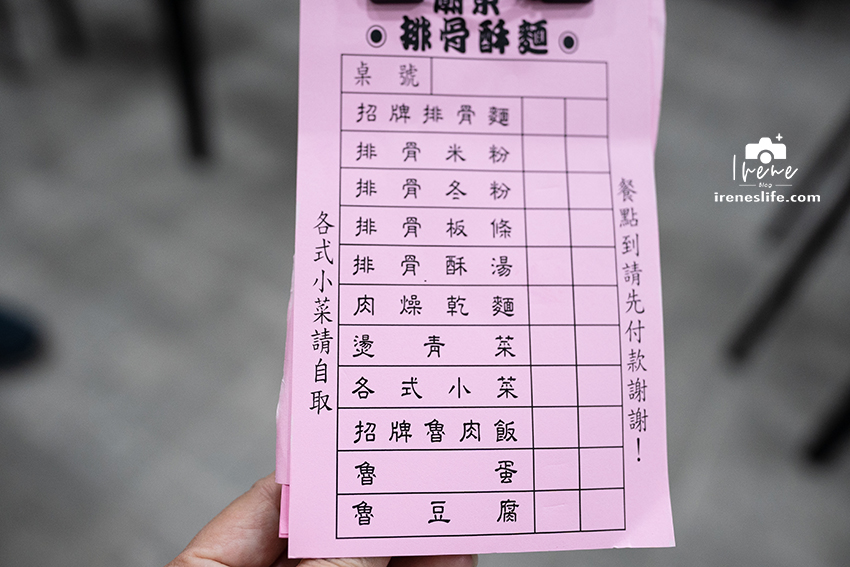 廟東
◉排骨酥麵◉
桌號
招牌排骨麵
排骨米粉
排骨冬粉
排骨板條
排骨酥湯
肉燥乾麵
燙青菜
各式小菜
招牌魯肉飯
魯蛋
魯豆腐
各式小菜請自取
餐點到請先付款謝謝！
Irene
Blog
ireneslife.com